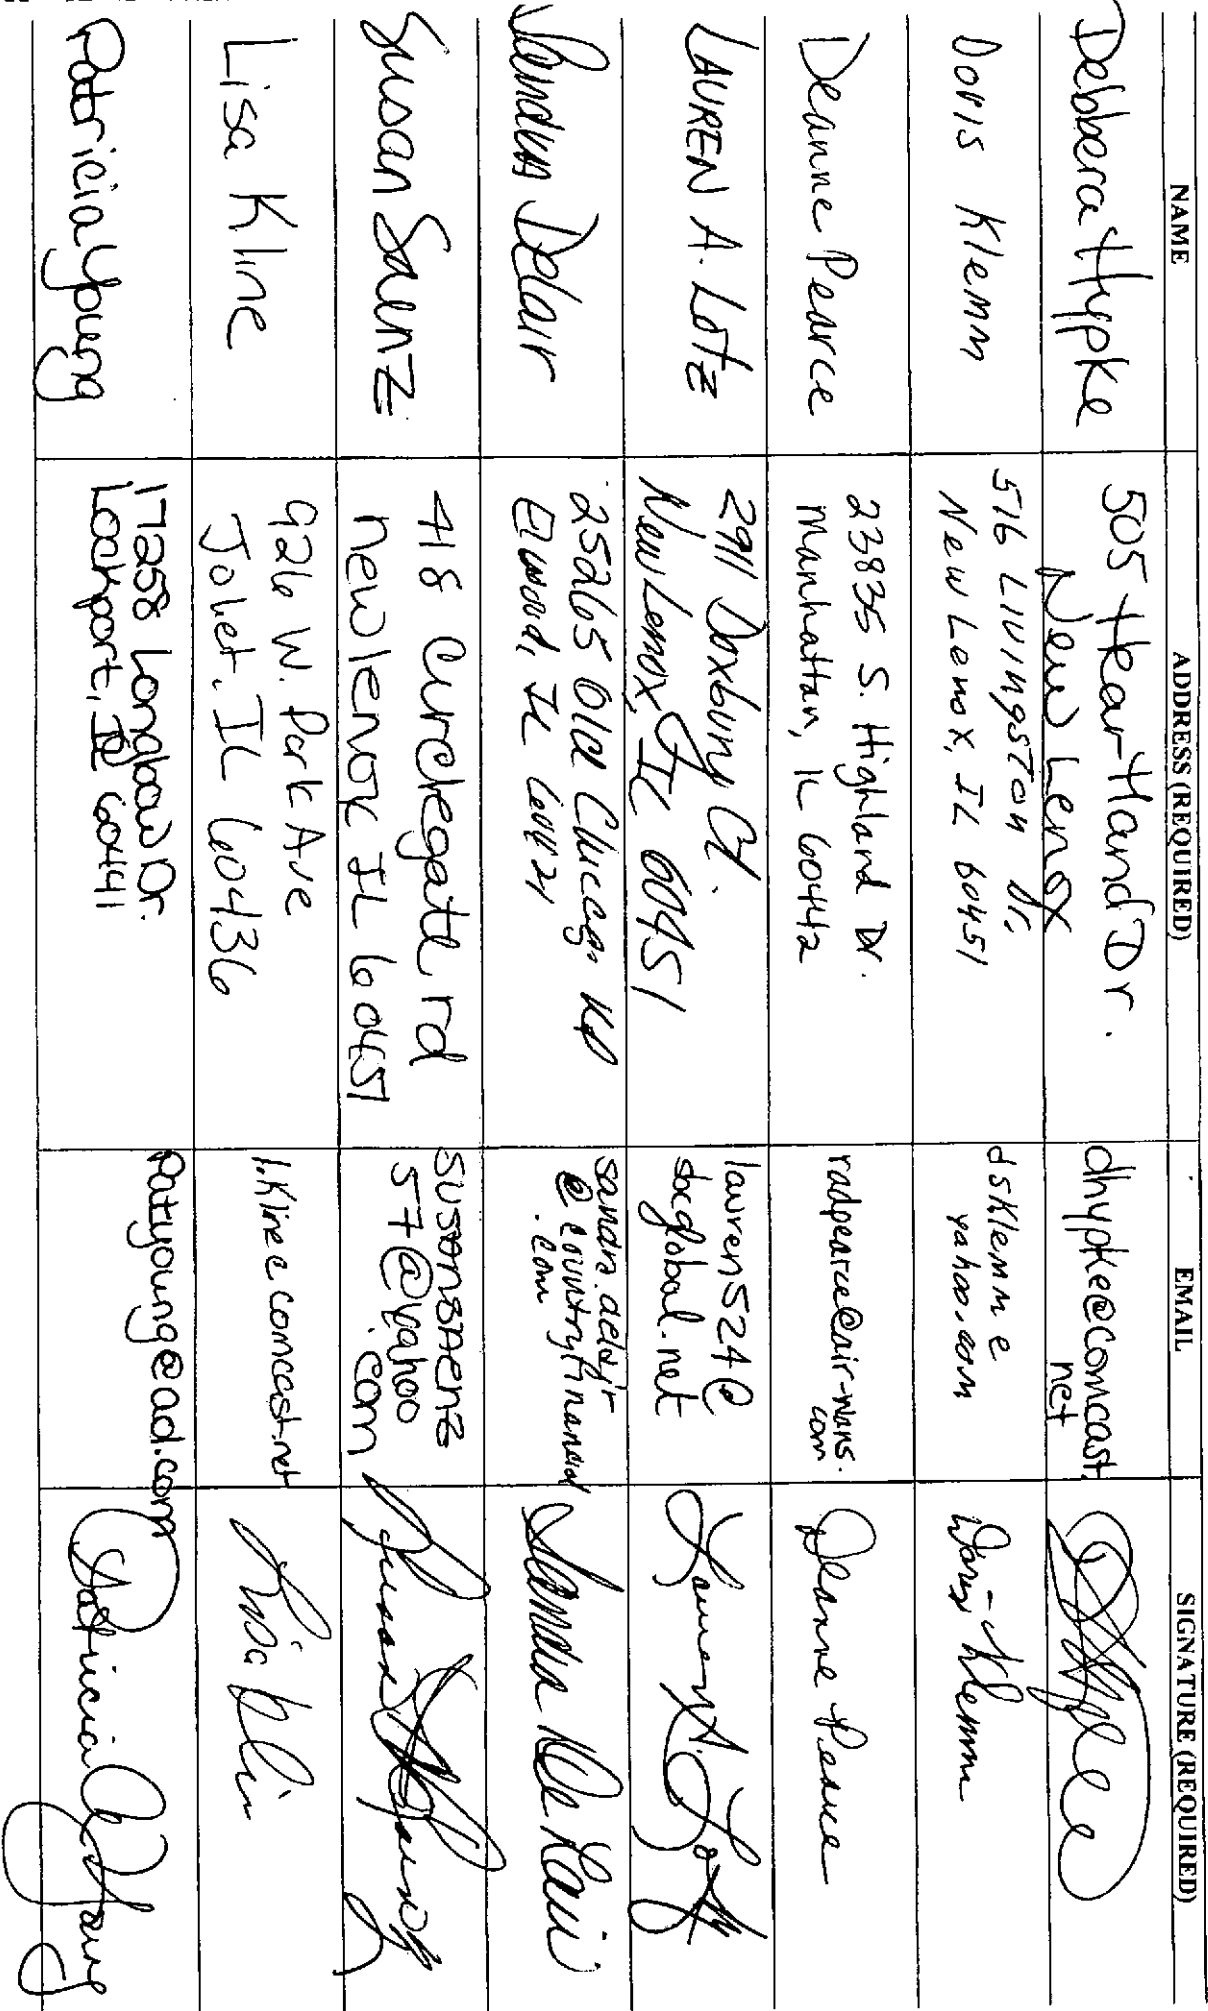 NAME
ADDRESS (REQUIRED)
EMAIL
SIGNATURE (REQUIRED)
Debbera Hypke
505 HeartHand Dr.
New Lenox
dhypke@comcast.
net
Doris Klemm
516 Livingston Dr.
New Lenox, IL 60451
dsklemm@
yahoo.com
Doris Klemm
Deanne Pearce
23835 S. Highland Dr.
Manhattan, IL 60442
radpearce@air-wans.
com
Deanne Pearce
LAUREN A. Lotz
2911 Doxbury Ct.
New Lenox, IL 60451
lauren524@
sbcglobal.net
Lauren A. Lotz
Sandra Delair
25265 Old Chicago RD
Elwood, IL 60421
sandra.delair
@countryfinancial
.com
Sandra DeLair
Susan Saenz
418 Circlegate rd
New lenox IL 60451
SUSANSAENZ
57@yahoo
.com
Susan Saenz
Lisa Kline
926 W. Park Ave
Joliet, IL 60436
l.kline@comcast.net
Lisa Kline
Patricia Young
17258 Longbow Dr.
Lockport, IL 60441
patyoung@aol.com
Patricia Young